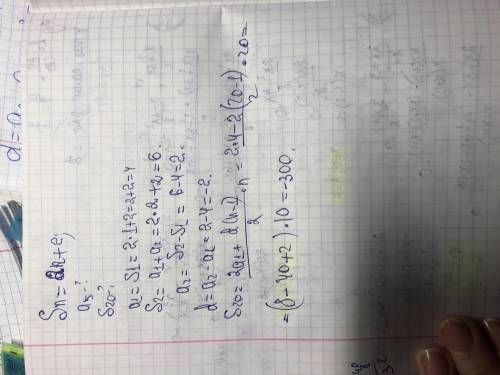 d=a
Sn=2n+2;
a5=?
S20-?
a1=S1=2·1+2=2+2=4
S2=a1+a2=2·2+2=6.
a2=S2-S1=6-4=2.
d=a2-a1=2-4=-2.
S20=\frac{2a1+d(n-1)}{2}·n=\frac{2·4-2(20-1)}{2}·20=
=(8-40+2)·10=-300.